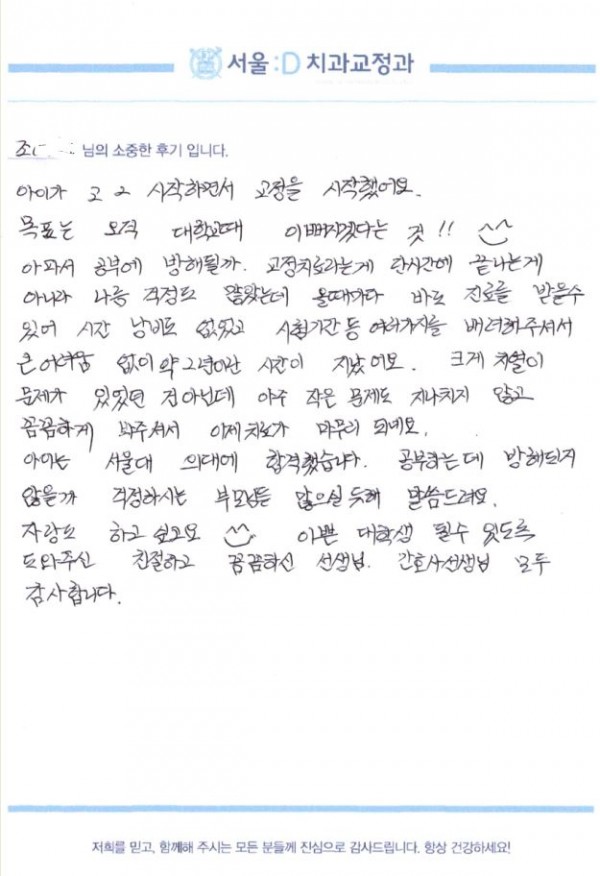 서울:D 치과교정과
조 님의 소중한 후기 입니다.
아이가 고2 시작하면서 교정을 시작했어요.
목표는 오직 대학교때 이뻐지겠다는 것!! ^^
아파서 공부에 방해될까. 교정치료라는게 단시간에 끝나는게
아니라 나름 걱정도 많았는데 올때마다 바로 진료를 받을수
있어 시간 낭비도 없었고 시험기간 등 여러가지를 배려해주셔서
큰 어려움 없이 약 2년이란 시간이 지났어요. 크게 치열이
문제가 있었던 건 아닌데 아주 작은 문제도 지나치지 않고
꼼꼼하게 봐주셔서 이제 치료가 마무리 되네요.
아이는 서울대 의대에 합격했습니다. 공부하는데 방해되지
않을까 걱정하시는 부모님들 많으실 듯해 말씀드려요.
자랑도 하고 싶고요 ^^ 이쁜 대학생 될수 있도록
도와주신 친절하고 꼼꼼하신 선생님. 간호사선생님 모두
감사합니다.
저희를 믿고, 함께해 주시는 모든 분들께 진심으로 감사드립니다. 항상 건강하세요!